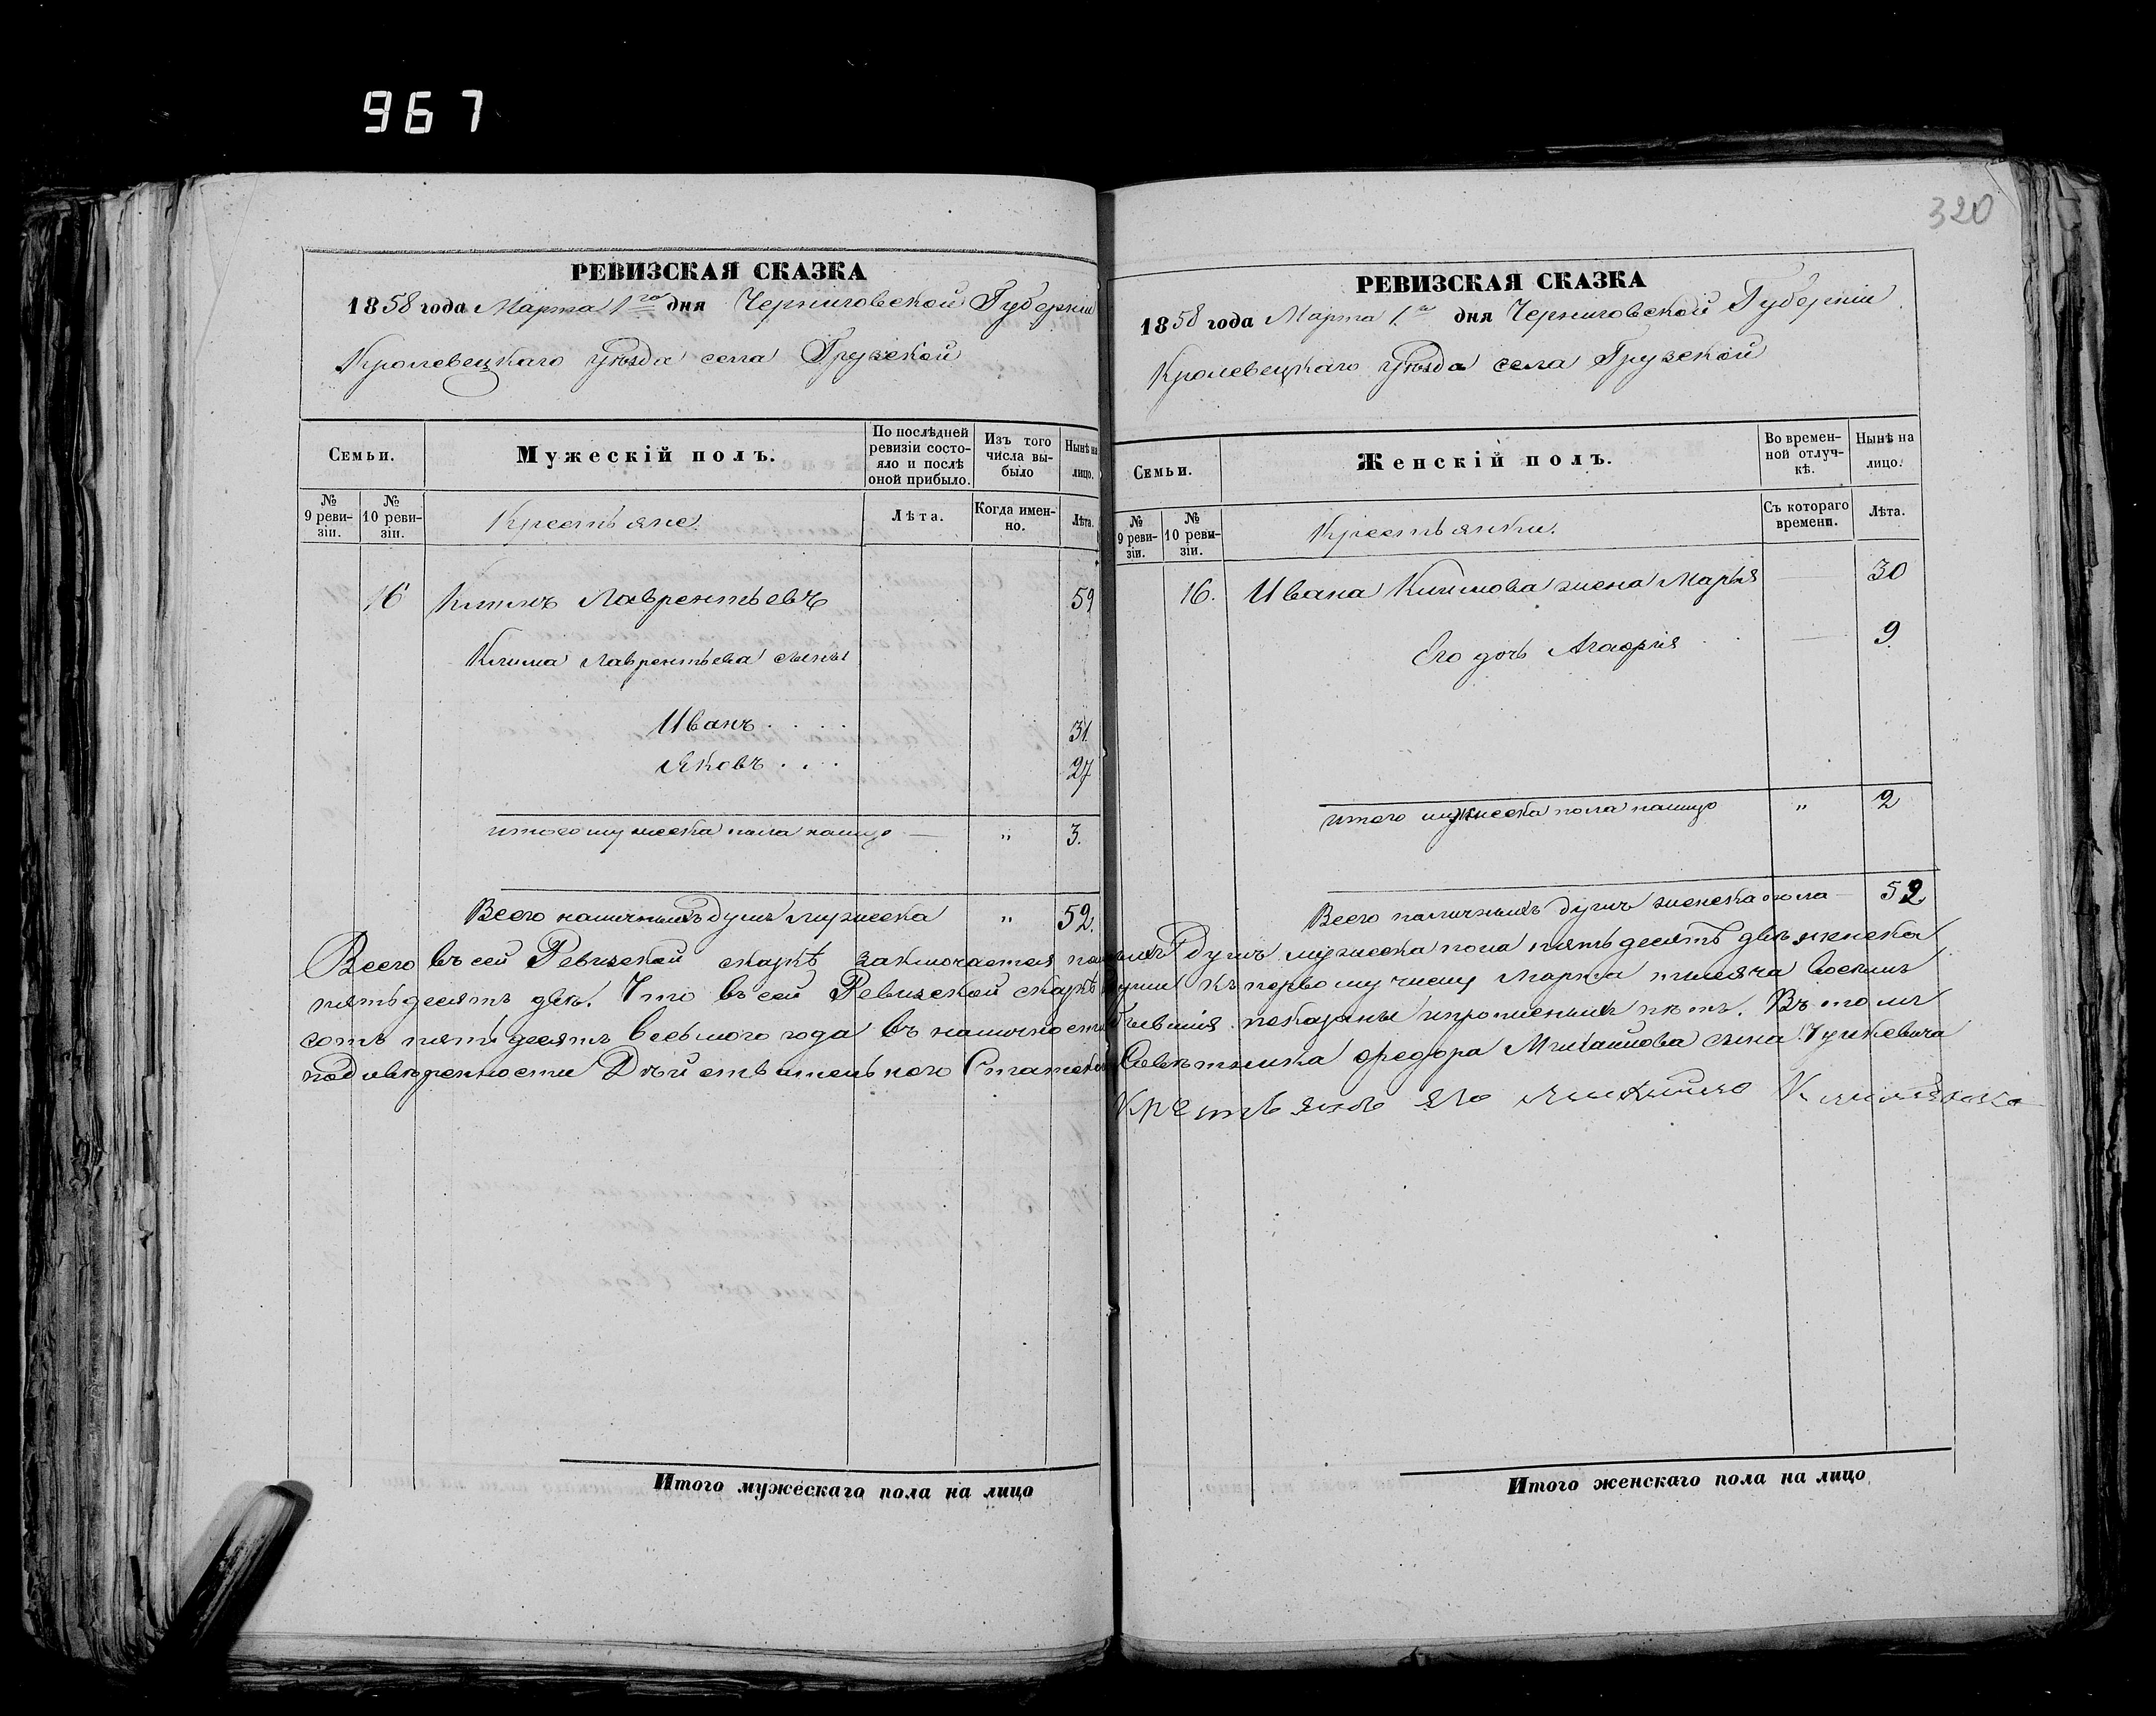 967
РЕВИЗСКАЯ СКАЗКА
1858 года Марта 1го дня Черниговской Губерніи
Кролевецкаго Уѣзда села Грузской
Семьи.
Мужескій полъ.
По послѣдней ревизіи состояло и послѣ оной прибыло.
Изъ того числа выбыло
Нынѣ на лицо.
№ 9 ревизіи.
№ 10 ревизіи.
Крестьяне.
Лѣта.
Когда именно.
Лѣта.
16 Климъ Лаврентьевъ 59
Клима Лаврентьева сыны
Иванъ . . . . 31.
Яковъ . . . 27
итого мужеска пола налицо — " 3.
Всего наличныхъ душъ мужеска " 52.
320
РЕВИЗСКАЯ СКАЗКА
1858 года Марта 1.го дня Черниговской Губерніи
Кролевецкаго Уѣзда села Грузской
Семьи.
Женскій полъ.
Во временной отлучкѣ.
Нынѣ на лицо.
№ 9 ревизіи.
№ 10 ревизіи.
Крестьянки.
Съ котораго времени.
Лѣта.
16. Ивана Климова жена Марья — 30
Его дочь Агафія — 9.
итого мужеска пола налицо " 2
Всего наличныхъ душъ женска пола — 52
Всего въ сей Ревизской сказкѣ заключается наличныхъ душъ мужеска пола пятьдесятъ двѣ женска
пятьдесятъ двѣ. Что въ сей Ревизской сказкѣ души къ первому числу Марта тысяча восемь
сотъ пятьдесятъ восьмого года въ наличности бывшія показаны и прописныхъ нѣтъ. Въ томъ
по довѣренности Дѣйствительнаго Статскаго Совѣтника Федора Михайлова сына Тушкевича
крестьянинъ его
Итого мужескаго пола на лицо
Итого женскаго пола на лицо